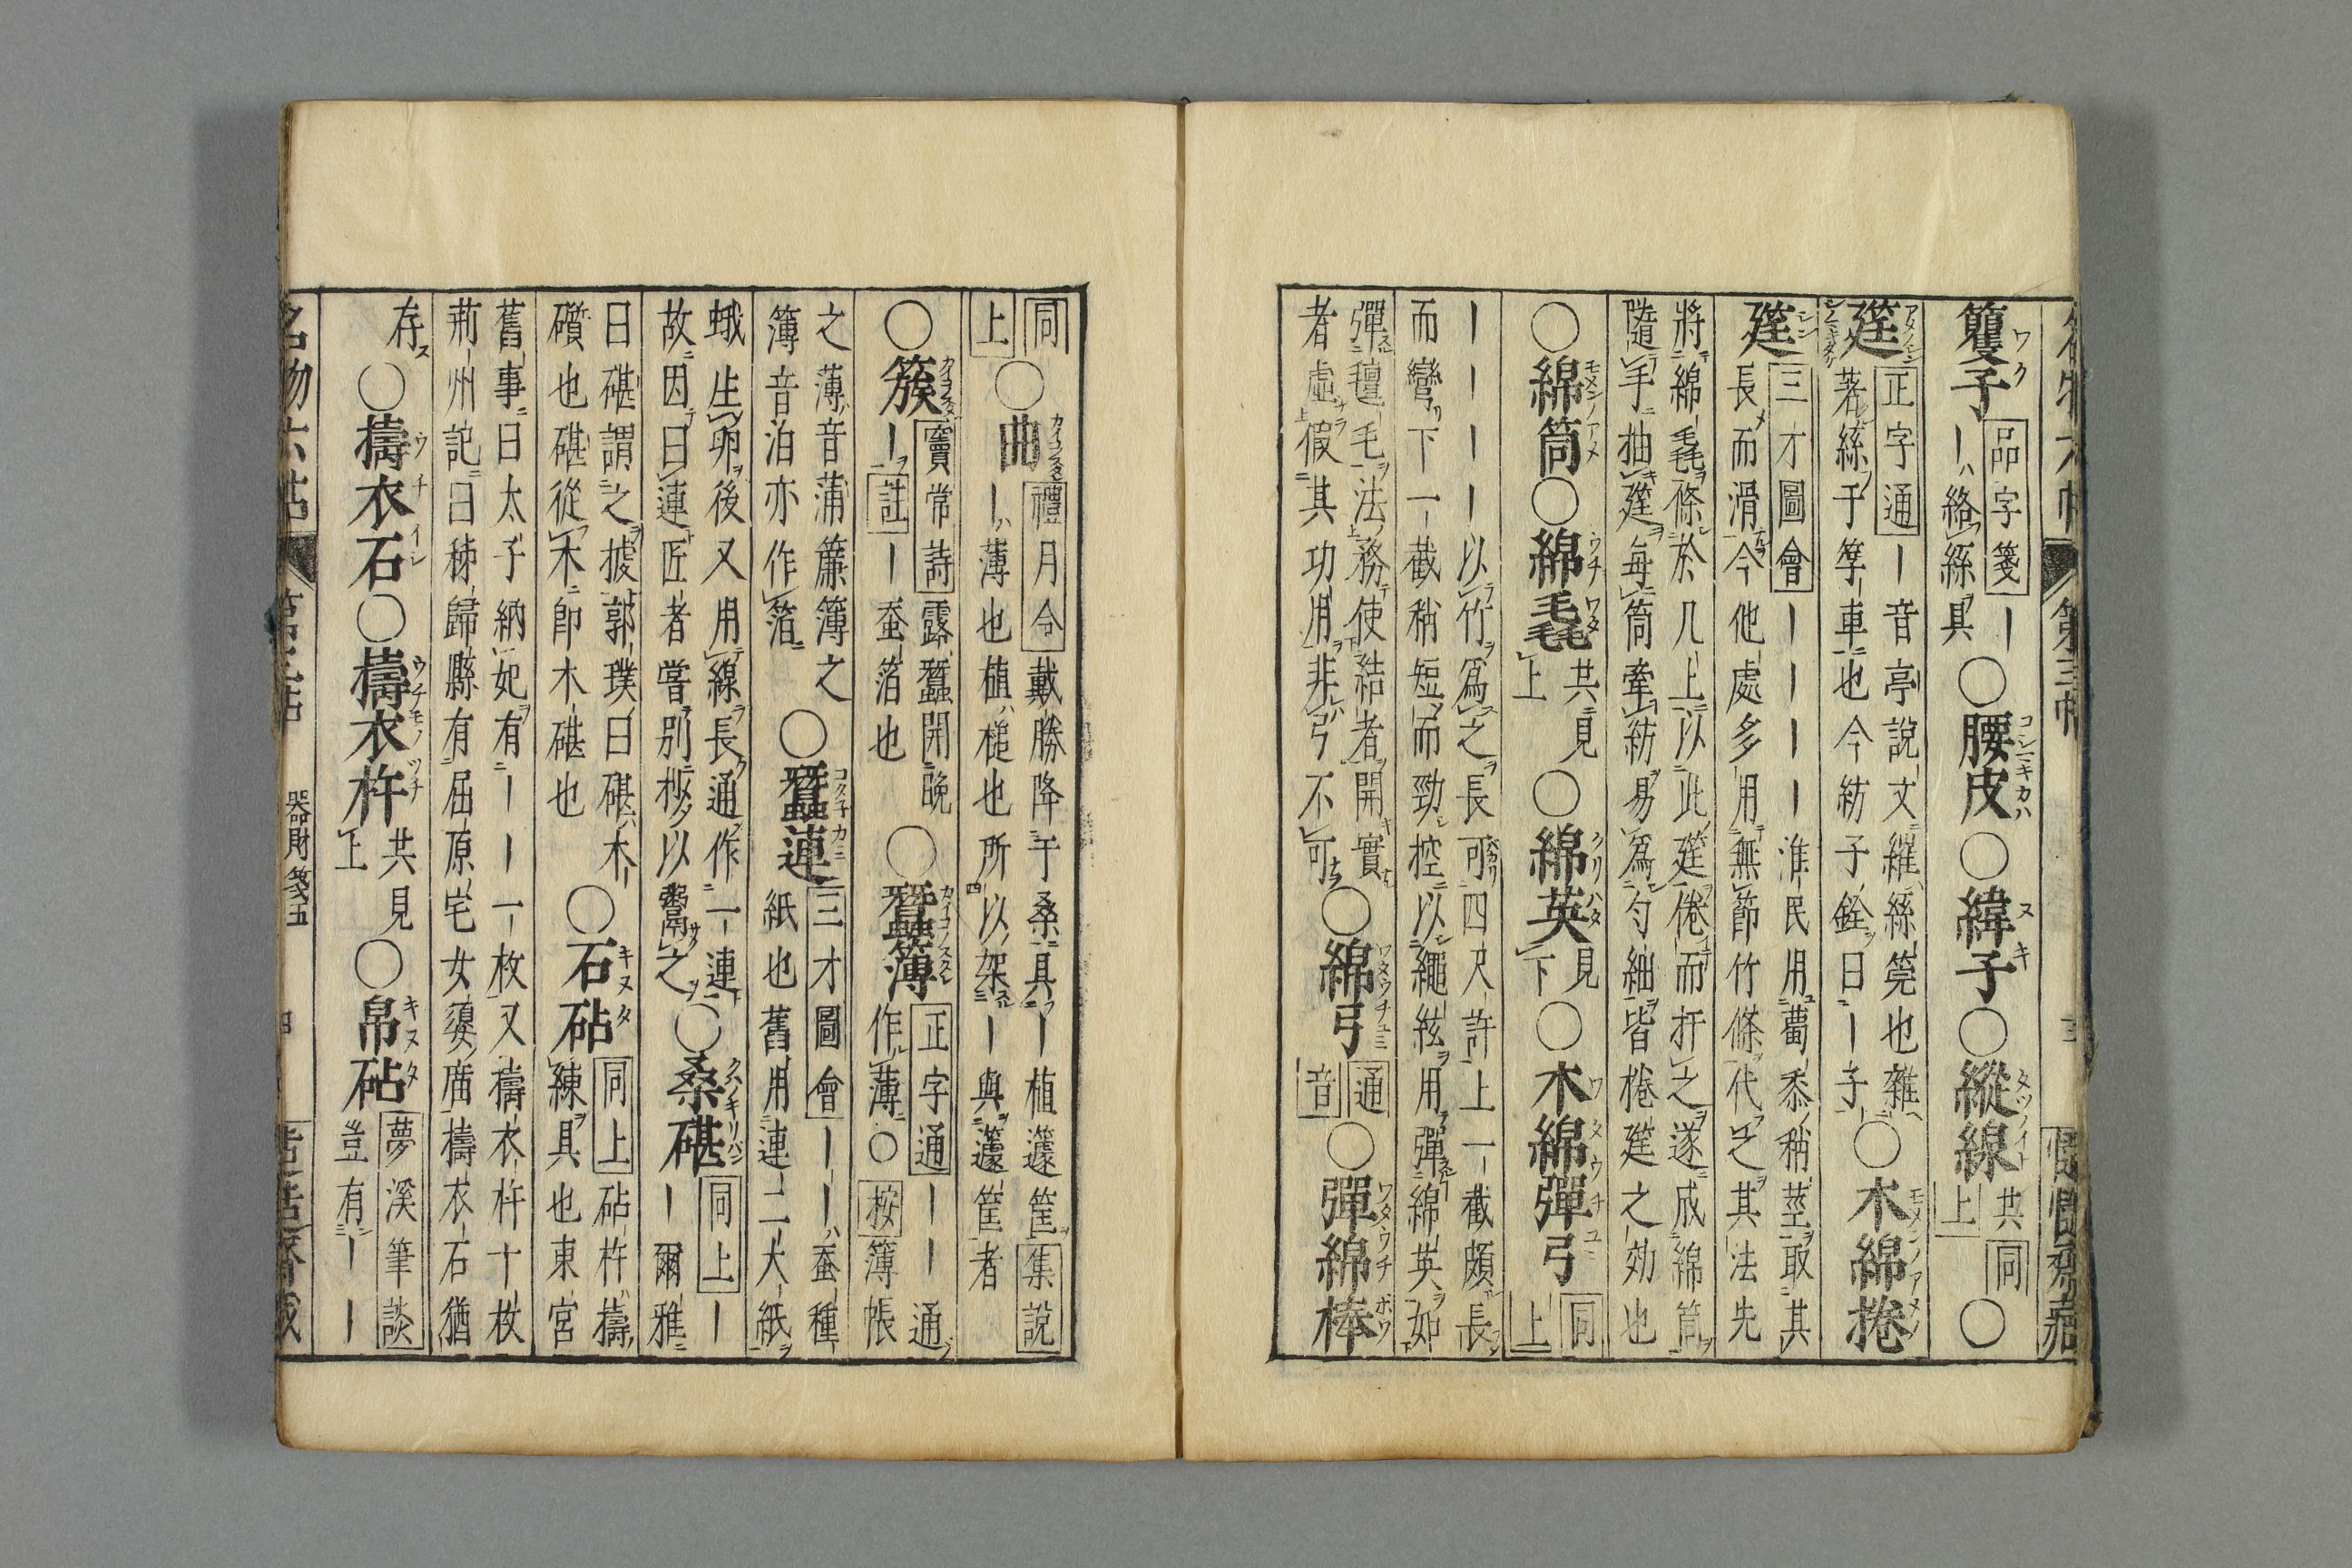 名物六帖 第三帖 三
籰子 ワク 品字箋 ｜ ｜ハ絡絲具 ○ 腰皮 コシニキカハ ○ 緯子 ヌキ ○ 縱線 タツノイト 共同上 ○
筳 正字通 ｜音亭說文維絲筦也雜
著絲于筟車也今紡子銓曰｜子 ○ 木綿捲
筳 シン 三才圖會 ｜｜｜｜淮民用蜀黍稍莖取其
長而滑今他處多用無節竹條代之其法先
將綿毳條於几上以此筳倦而扞之遂成綿筒
隨手抽筳每筒牽紡易爲勻細皆捲筳之効也
○ 綿筒 モメンノアメ ○ 綿毳 ウチワタ 共見上 ○ 綿英 クリハタ 見下 ○ 木綿彈弓 ワタウチユミ 同上
｜｜｜｜以竹爲之長可四尺許上一截頗長
而彎下一截稍短而勁控以繩絃用彈綿英如
彈氊毛法務使結者開實
者虛假其功用非弓不可 ○ 綿弓 ワタウチユミ 通音 ○ 彈綿棒 ワタウチボウ
同上 ○ 曲 禮月令 戴勝降于桑具｜植籧筐 集說
｜ハ薄也植ハ槌也所以架｜與籧筐者
○ 簇 竇常詩 露蠶開晚
｜ 註 ｜蚕箔也 ○ 蠶簿 正字通 ｜｜通
作薄 ○ 按 簿帳
之薄音蒲簾簿之
簿音泊亦作箔 ○ 蠶連 三才圖會 ｜｜ハ蚕種
紙也舊用連二大紙
蛾生卵後又用線長通作一連
故因曰連匠者嘗別抄以鬻之 ○ 桑碪 クハキリバン 同上 ｜
｜爾雅
曰碪謂之䖍郭璞曰碪木
礩也碪從木卽木碪也 ○ 石砧 キヌタ 同上 砧杵擣
練具也東宮
舊事曰太子納妃有｜｜一枚又擣衣杵十枚
荊州記曰秭歸縣有屈原宅女嬃廟擣衣石猶
存 ○ 擣衣石 ○ 擣衣杵 ウチモノヅチ 共見上 ○ 帛砧 キヌタ 夢溪筆談
豈有｜｜
名物六帖 第三帖 器財箋五 四